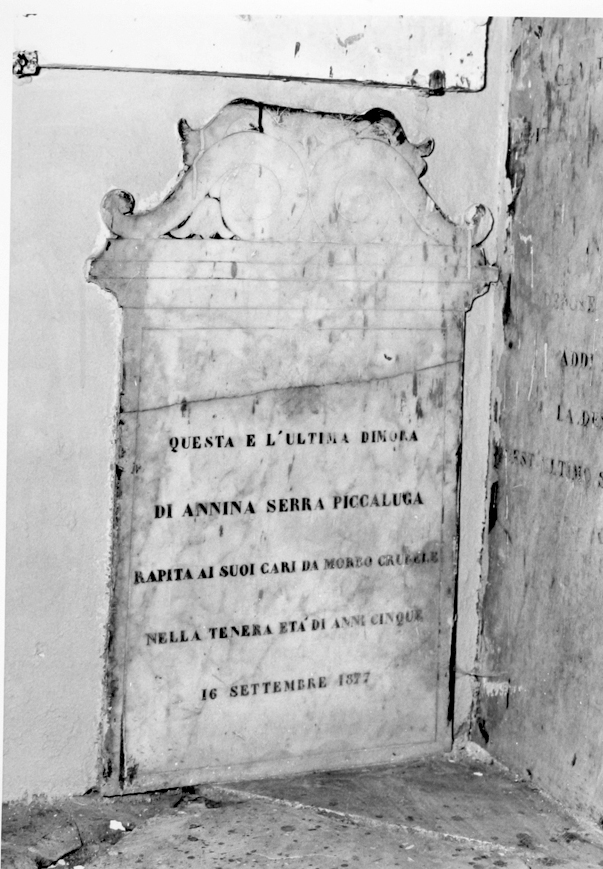 QUESTA E L'ULTIMA DIMORA
DI ANNINA SERRA PICCALUGA
RAPITA AI SUOI CARI DA MORBO CRUDELE
NELLA TENERA ETÁ DI ANNI CINQUE
16 SETTEMBRE 1877
ADDI
LA
ULTIMO